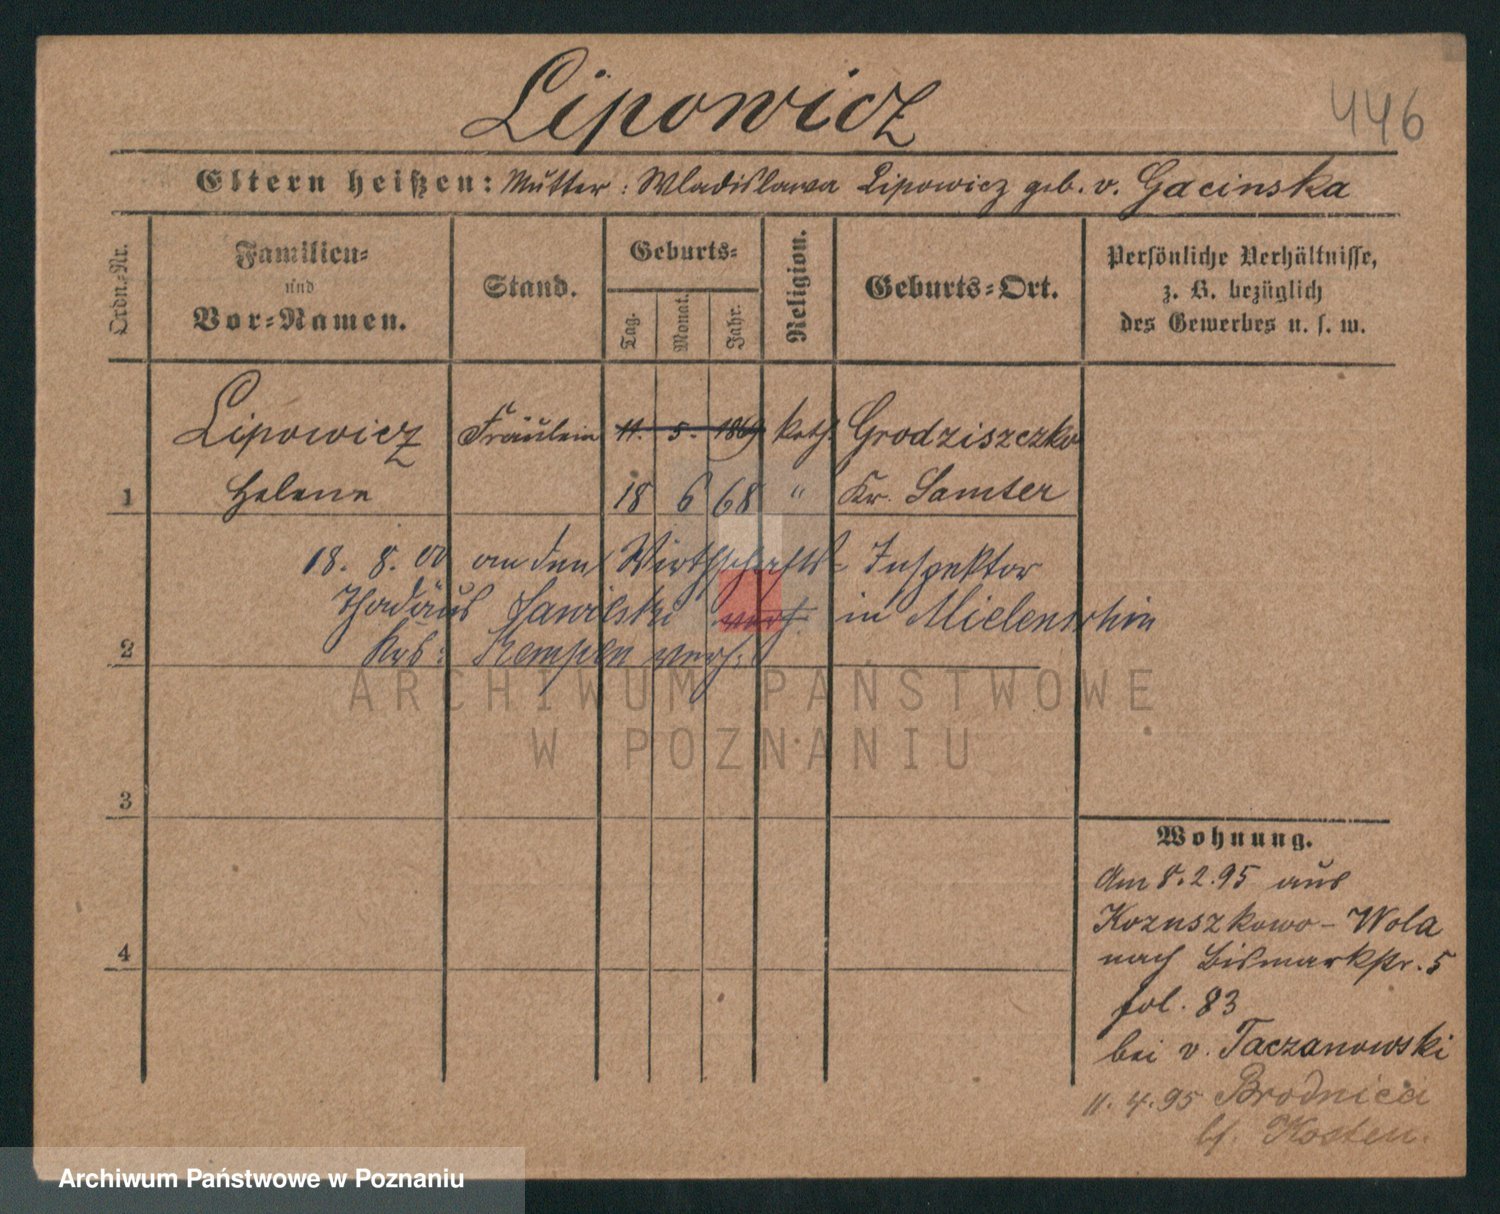 Lipowicz
446
Eltern heißen: Mutter: Wladislawa Lipowicz geb. v. Gacinska
Ordn.-Nr.
Familien-
und
Vor-Namen.
Stand.
Geburts-
Tag.
Monat.
Jahr.
Religion.
Geburts-Ort.
Persönliche Verhältnisse,
z. B. bezüglich
des Gewerbes u. s. w.
Lipowicz Fräulein 11. 5. 1869 kath. Grodziszczko
1 Helene 18 6 68 " Kr. Samter
18. 8. 00 an den Wirthschafts-Inspektor
Thadäus Sawilski verh. in Mielenschin
2 Krs: Kempen verh:
3
4
Wohnung.
Am 8.2.95 aus
Kozuszkowo-Wola
nach Bismarkstr. 5
fol. 83
bei v. Taczanowski
11. 4. 95 Brodnica
bf. Kosten.
ARCHIWUM PAŃSTWOWE
W POZNANIU
Archiwum Państwowe w Poznaniu